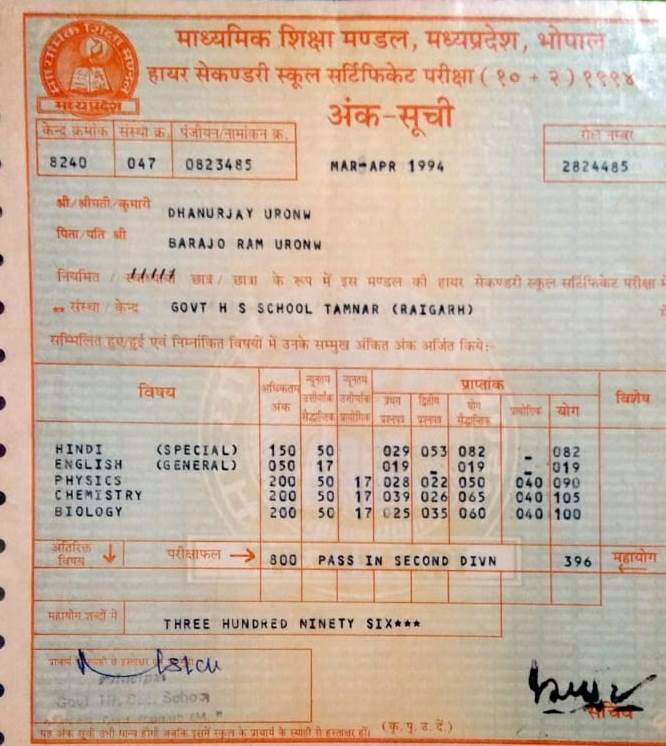 माध्यमिक शिक्षा मण्डल, मध्यप्रदेश, भोपाल
हायर सेकण्डरी स्कूल सर्टिफिकेट परीक्षा ( १० + २ ) १९९४
मध्यप्रदेश
अंक-सूची
केन्द्र क्रमांक संस्था क्र. पंजीयन/नामांकन क्र. रोल नम्बर
8240 047 0823485 MAR-APR 1994 2824485
श्री/श्रीमती/कुमारी DHANURJAY URONW
पिता/पति श्री BARAJO RAM URONW
नियमित / छात्र / छात्रा के रूप में इस मण्डल की हायर सेकण्डरी स्कूल सर्टिफिकेट परीक्षा में
** संस्था / केन्द्र GOVT H S SCHOOL TAMNAR (RAIGARH)
सम्मिलित हुए/हुई एवं निम्नांकित विषयों में उनके सम्मुख अंकित अंक अर्जित किये:-
विषय अधिकतम अंक न्यूनतम उत्तीर्णांक सैद्धान्तिक न्यूनतम उत्तीर्णांक प्रायोगिक प्राप्तांक विशेष
प्रथम प्रश्नपत्र द्वितीय प्रश्नपत्र योग सैद्धान्तिक प्रायोगिक योग
HINDI (SPECIAL) 150 50 029 053 082 - 082
ENGLISH (GENERAL) 050 17 019 - 019 - 019
PHYSICS 200 50 17 028 022 050 040 090
CHEMISTRY 200 50 17 039 026 065 040 105
BIOLOGY 200 50 17 025 035 060 040 100
अतिरिक्त विषय ↓ परीक्षाफल → 800 PASS IN SECOND DIVN 396 महायोग
महायोग शब्दों में THREE HUNDRED NINETY SIX***
सचिव
यह अंक सूची तभी मान्य होगी जबकि इसमें स्कूल के प्राचार्य के स्याही से हस्ताक्षर हों। (कृ. पृ. उ. दे.)